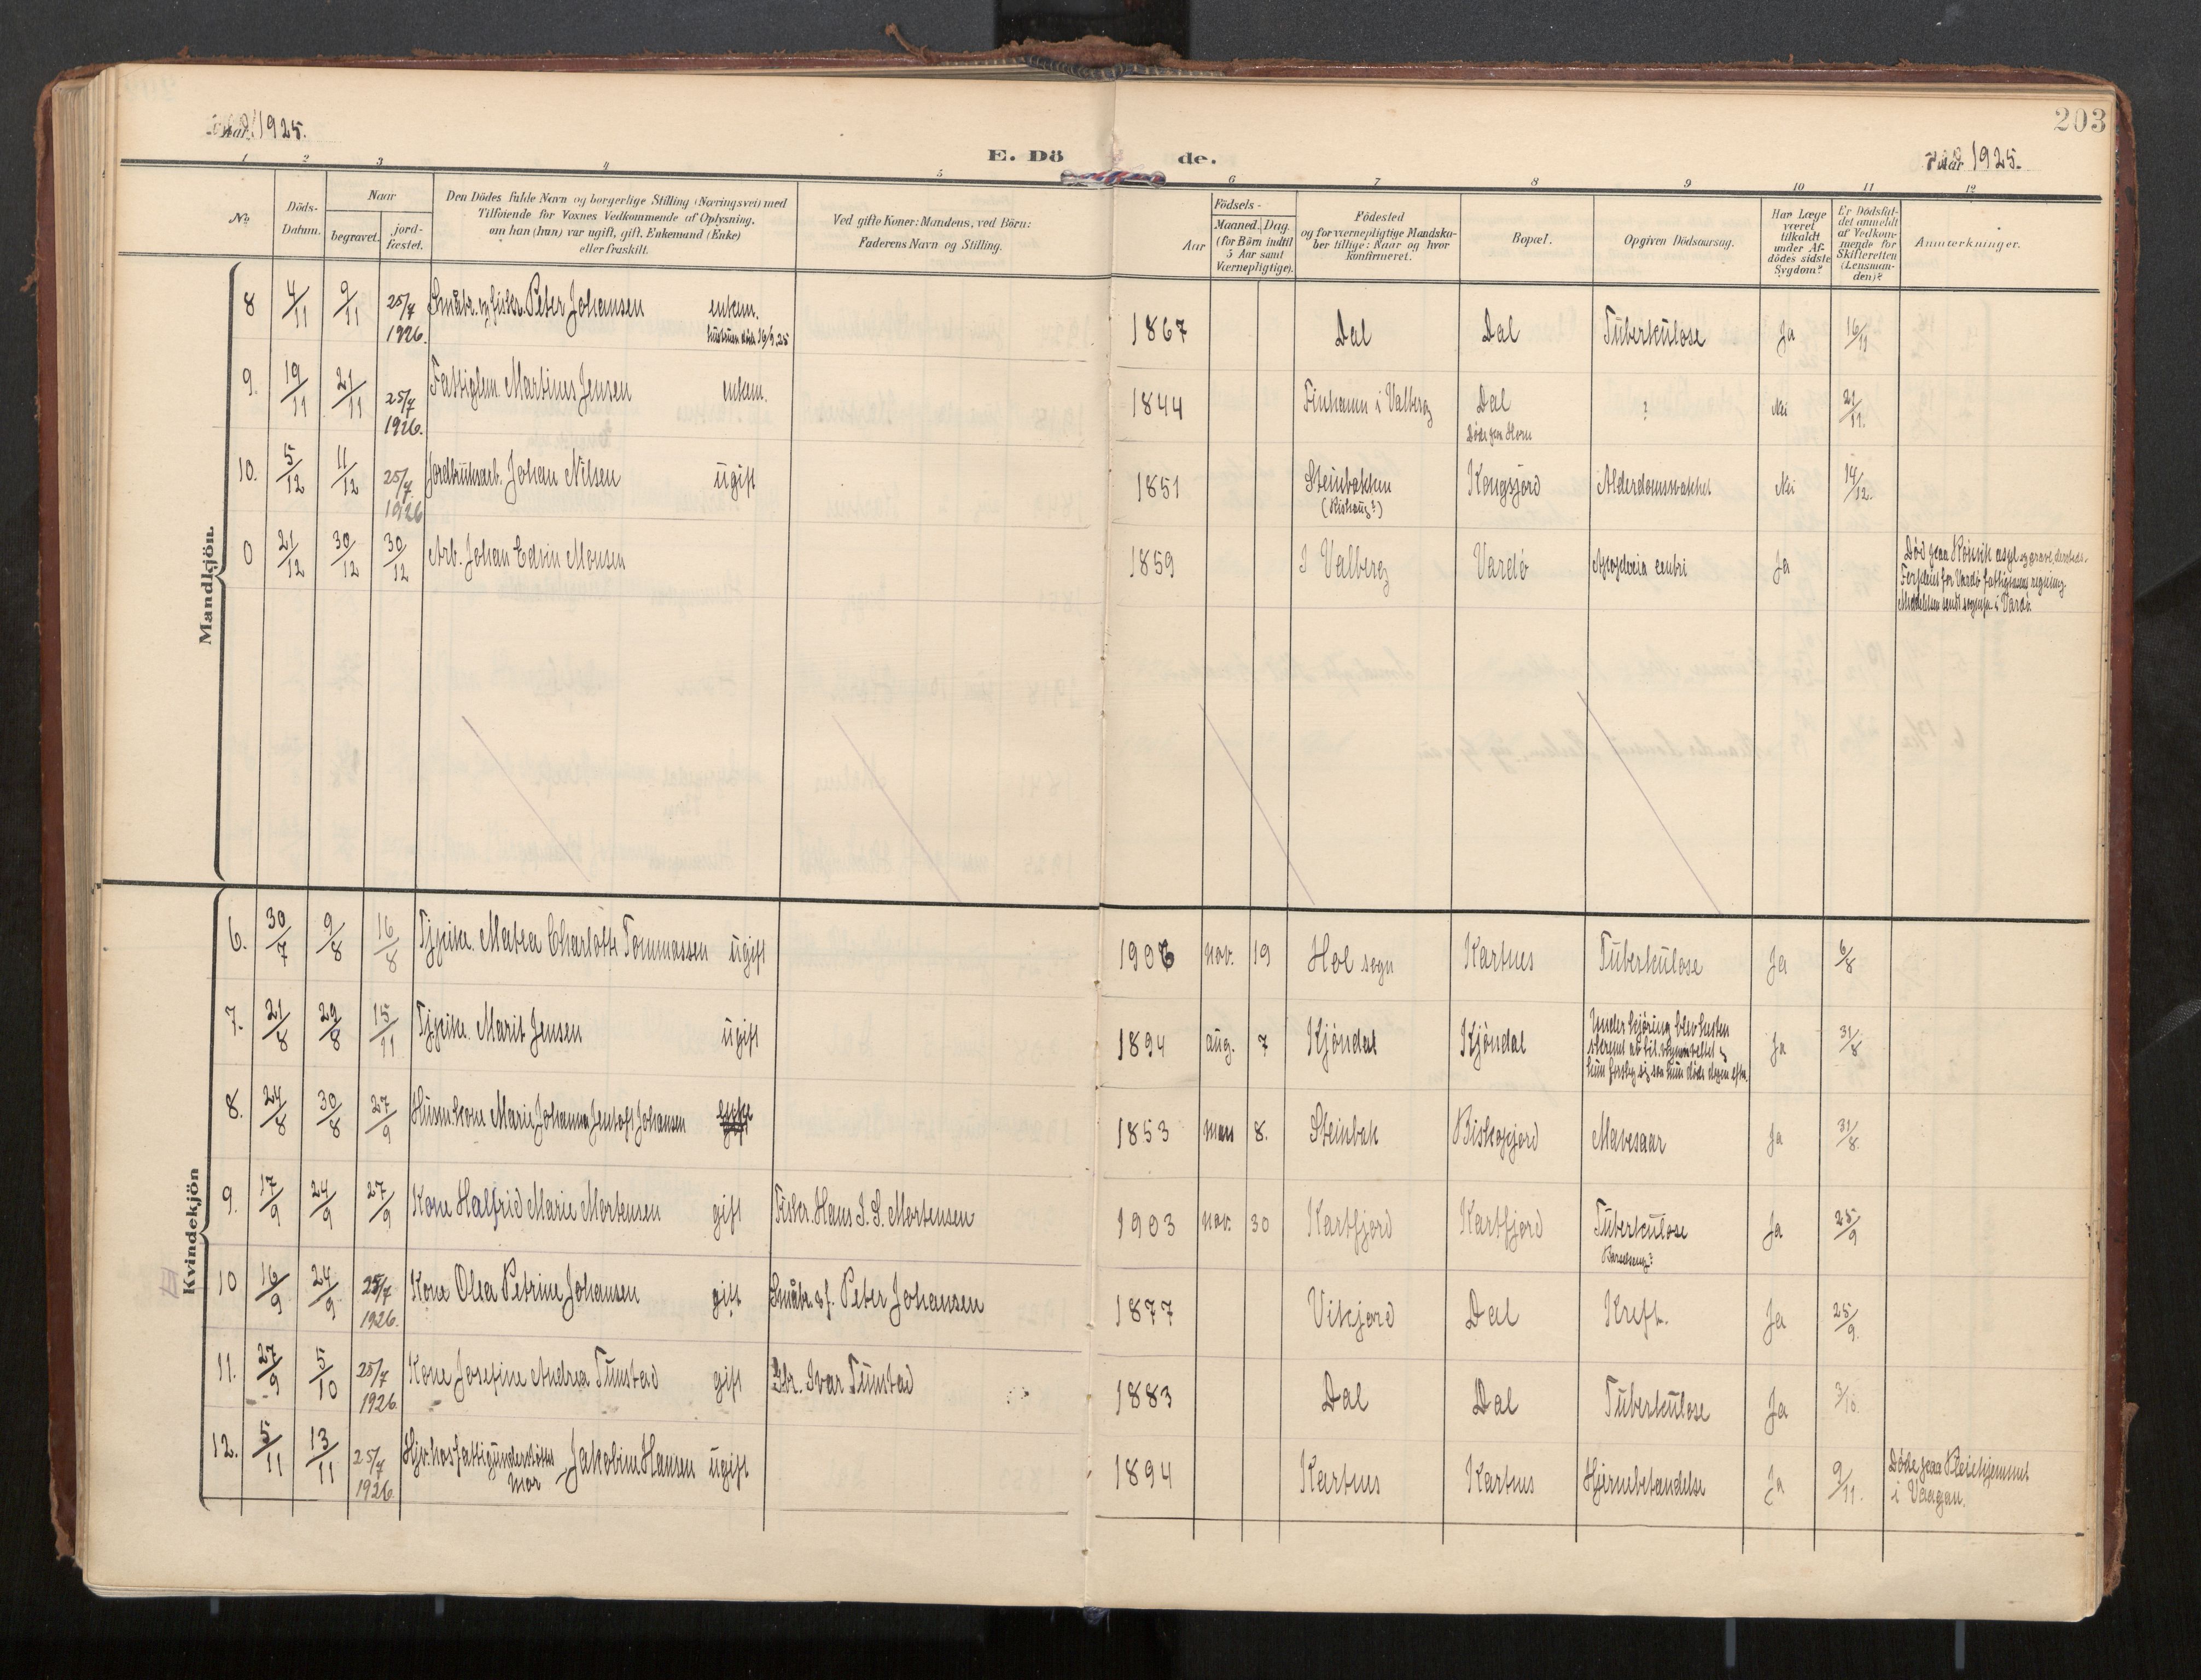 203
Aar 1925.
E. Dö de.
Aar 1925.
1 2 3 4 5 6 7 8 9 10 11 12
No.
Döds-Datum.
Naar
begravet.
jord-fæstet.
Den Dödes fulde Navn og borgerlige Stilling (Næringsvei) med
Tilföiende for Voxnes Vedkommende af Oplysning.
om han (hun) var ugift, gift, Enkemand (Enke)
eller fraskilt.
Ved gifte Koner: Mandens, ved Börn:
Faderens Navn og Stilling.
Födsels-
Aar
Maaned. Dag.
(for Börn indtil
5 Aar samt
Værnepligtige).
Födested
og for værnepligtige Mandska-
ber tillige: Naar og hvor
konfirmeret.
Bopæl.
Opgiven Dödsaarsag.
Har Læge
været
tilkaldt
under Af-
dödes sidste
Sygdom?
Er Dödsfal-
det anmeldt
af Vedkom-
mende for
Skifteretten
(Lensman-
den)?
Anmærkninger.
Mandkjön.
8 4/11 9/11 25/7 1926. Småbr. og fisker. Peter Johansen enkem. 1867 Dal Dal Tüberkülose Ja 16/11
hustruen död 16/9.25
9. 19/11 21/11 25/7 1926. Fattiglem. Martinus Jensen enkem. 1844 Finhamn i Valberg Dal ? Nei 21/11.
Döde paa Horn
10. 5/12 11/12 25/7 1926 Jordbrüksarb. Johan Nilsen ügift 1851 Steinbakken Kongsjord Alderdomssvakhet Nei 14/12.
0 21/12 30/12 30/12 Arb. Johan Edvin Monsen 1859 I Valberg Vardö Apoplexia cerebri Ja Död paa Rönvik asyl og
for Vardö fattigvæsens regning
Meddelelse sendt sognepr. i Vardö.
Kvindekjön
6. 30/7 9/8 16/8 Tjpike. Matea Charlotte Tommassen ügift 1906 nov. 19 Hol sogn Kartnes Tüberkülose Ja 6/8
7. 21/8 29/8 15/11 Tjpike. Marit Jensen ügift 1894 aüg. 7 Kjöndal Kjöndal Under kjöring blev hesten
hun forslog sig saa hun döde dagen efter. Ja 31/8
8. 24/8 30/8 27/9 Hüsm.kone Marie Johanna Jentoft Johansen enke 1853 mars 8. Steinbak Biskopjord Mavesaar Ja 31/8.
9. 17/9 24/9 27/9 Kone Halfrid Marie Mortensen gift Fisker. Hans J. S. Mortensen 1903 nov. 30 Kartfjord Kartfjord Tüberkülose Ja 25/9
Barselseng?
10 16/9 24/9 25/7 1926. Kone Olea Petrine Johansen gift Småbr. & f. Peter Johansen 1877 Vikjord Dal Kreft. Ja 25/9.
11. 27/9 5/10 25/7 1926. Kone Josefine Andrea Tünstad gift Gbr. Ivar Tünstad 1883 Dal Dal Tüberkülose Ja 3/10.
12. 5/11 13/11 25/7 1926. Hjv. hos fattigünderstöttet mor Jakobine Hansen ügift 1894 Kartnes Kartnes Hjernebetændelse Ja 9/11. Döde paa Pleiehjemmet
i Vaagan.